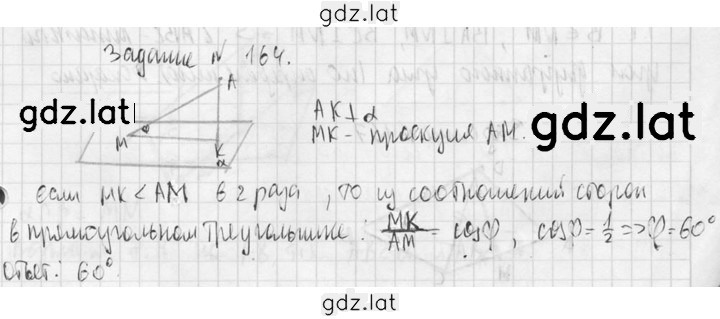 gdz.lat
Задание № 164.
A
gdz.lat
M φ K α
AK⊥α
gdz.lat
MK - проекция AM.
если MK < AM в 2 раза, то из соотношений сторон
в прямоугольном треугольнике: MK/AM = cosφ, cosφ = 1/2 => φ = 60°
Ответ: 60°
gdz.lat